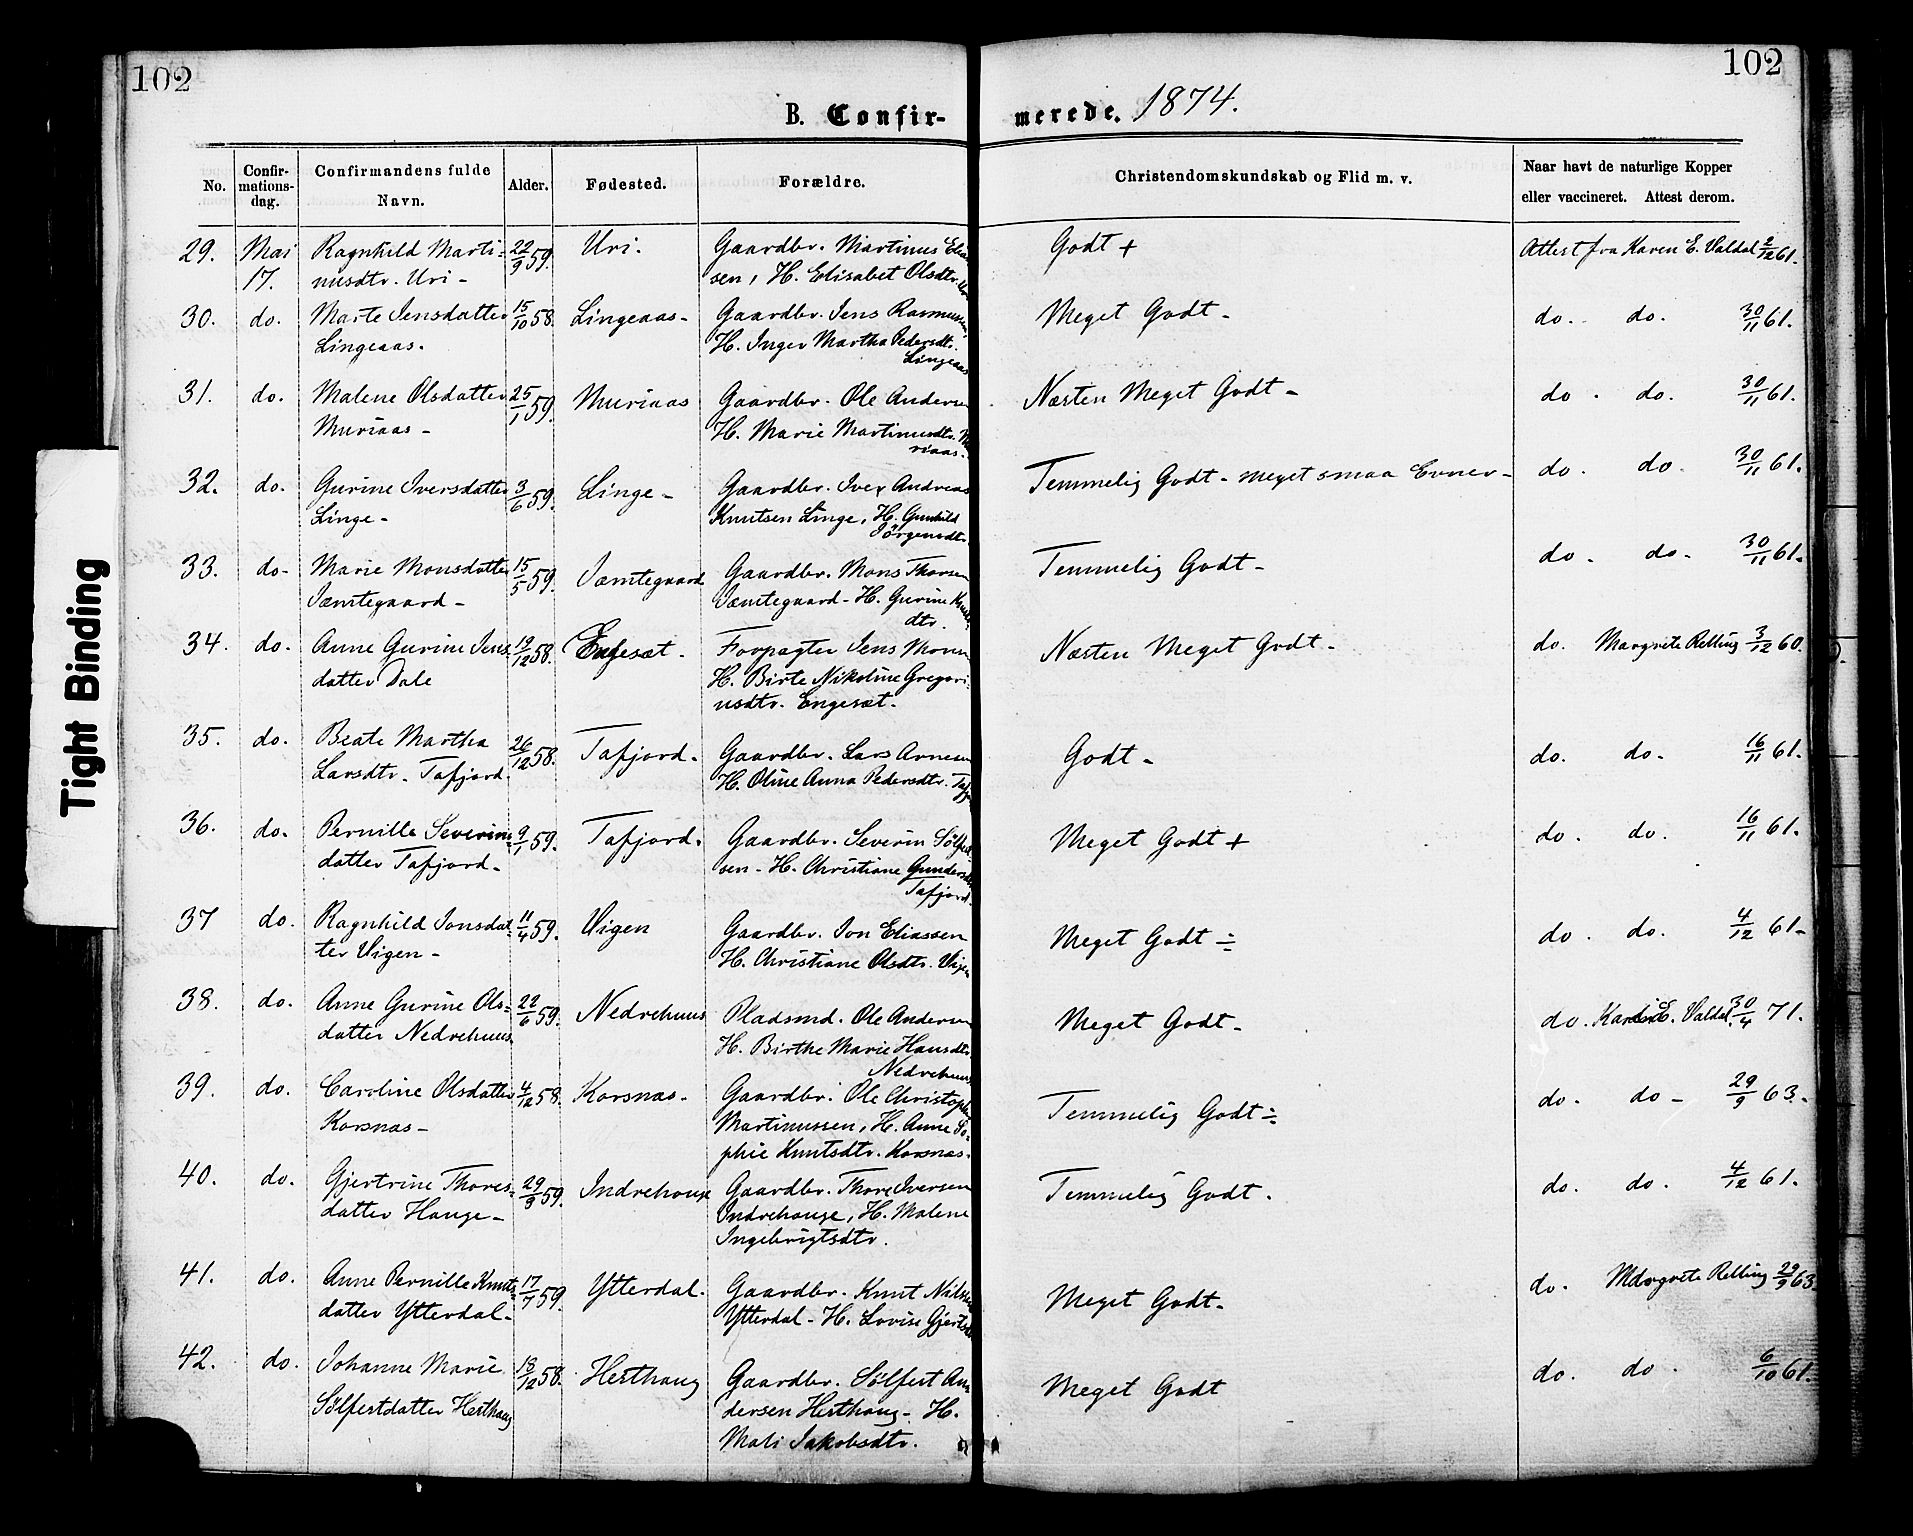 102
102
B. Confir-
merede. 1874.
No.
Confir-
mations-
dag.
Confirmandens fulde
Navn.
Alder.
Fødested.
Forældre.
Christendomskundskab og Flid m. v.
Naar havt de naturlige Kopper
eller vaccineret. Attest derom.
29. Mai Ragnhild Marti- 22/9 59. Uri. Gaardbr. Martinus Elia Godt + Attest fra Karen E. Valdal 2/12 61.
17. nusdtr. Uri - sen, H. Elisabet Olsdtr. Uri
30. do. Marte Jensdatter 15/10 58. Lingeaas - Gaardbr. Jens Rasmussen, Meget Godt - do. do. 30/11 61.
Lingeaas. H. Inger Martha Pedersdtr.
Lingeaas
31. do. Malene Olsdatter 25/1 59. Muriaas Gaardbr. Ole Andersen Næsten Meget Godt - do. do. 30/11 61.
Muriaas - H. Marie Martinusdtr. Mu
riaas.
32. do. Gurine Iversdatter 3/6 59. Linge - Gaardbr. Iver Andreas Temmelig Godt - meget smaa Evner - do. do. 30/11 61.
Linge - Knutsen Linge, H. Gunhild
Jörgensdtr.
33. do - Marie Monsdatter 15/5 59. Jæmtegaard Gaardbr. Mons Thorsen Temmelig Godt - do. do - 30/11 61.
Jæmtegaard - Jæmtegaard - H. Gurine Knuts
dtr.
34. do. Anne Gurine Jens 19/12 58. Engesæt. Forpagter Jens Monsen Næsten Meget Godt - do. Margrete Relling 3/12 60.
datter Dale H. Birte Nikoline Gregori-
usdtr. Engesæt.
35. do. Beate Martha 26/12 58. Tafjord. Gaardbr. Lars Arnesen Godt - do. do. 16/11 61.
Larsdtr. Tafjord. H. Oline Anna Pedersdtr. Tafj
36. do. Pernille Severins 9/1 59. Tafjord. Gaardbr. Severin Sølfest Meget Godt + do. do. 16/11 61.
datter Tafjord - sen - H. Christiane Gundersdtr
Tafjord.
37 do. Ragnhild Jonsdat- 11/4 59. Viigen Gaardbr. Jon Eliassen Meget Godt ÷ do. do. 4/12 61 -
ter Viigen - H. Christiane Olsdtr. Viigen
38. do. Anne Gurine Ols- 22/6 59. Nedrehuus Pladsmd. Ole Andersen Meget Godt - do. Karen E. Valdal. 30/4 71.
datter Nedrehuus. H. Birthe Marie Hansdtr
Nedrehuus
39. do. Caroline Olsdatter 4/12 58. Korsnæs - Gaardbr. Ole Christopher Temmelig Godt ÷ do. do - 29/9 63. -
Korsnæs - Martinussen, H. Anne So-
phie Knutsdtr. Korsnæs.
40. do. Gjertrine Thores- 29/3 59. Indrehouge Gaardbr. Thore Iversen Temmelig Godt. do. do. 4/12 61.
datter Houge - Indrehouge, H. Malene
Ingebrigtsdtr.
41. do. Anne Pernille Knuts- 17/7 59. Ytterdal. Gaardbr. Knut Nilssen Meget Godt - do. Margrete Relling 29/9 63 -
datter Ytterdal - Ytterdal - H. Lovise Gjertsd
42. do. Johanne Marie 18/12 58. Hesthaug Gaardbr. Sölfest An Meget Godt do. do. 6/10 61.
Sölfestdatter Hesthaug dersen Hesthaug - H.
Mali Jakobsdtr.
Tight Binding